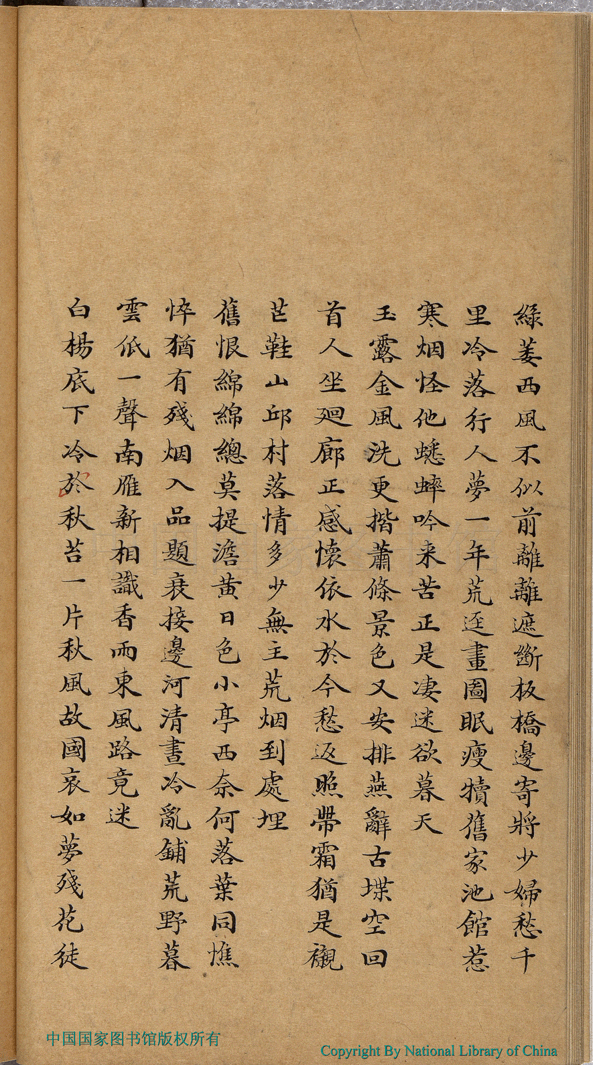 綠萋西風不似前離離遮斷板橋邊寄將少婦愁千
里冷落行人夢一年荒迳畫圖眠瘦犢舊家池館惹
寒烟怪他蟋蟀吟来苦正是凄迷欲暮天
玉露金風洗更揩蕭條景色又安排燕辭古堞空回
首人坐廻廊正感懷依水於今愁返照帶霜猶是襯
芒鞋山邱村落情多少無主荒烟到處埋
舊恨綿綿總莫提澹黄日色小亭西奈何落葉同憔
悴猶有殘烟入品題衰接邊河清晝冷亂鋪荒野暮
雲低一聲南雁新相識香雨東風路竟迷
白楊底下冷於秋苔一片秋風故國哀如夢殘花徒
中国国家图书馆版权所有
Copyright By National Library of China